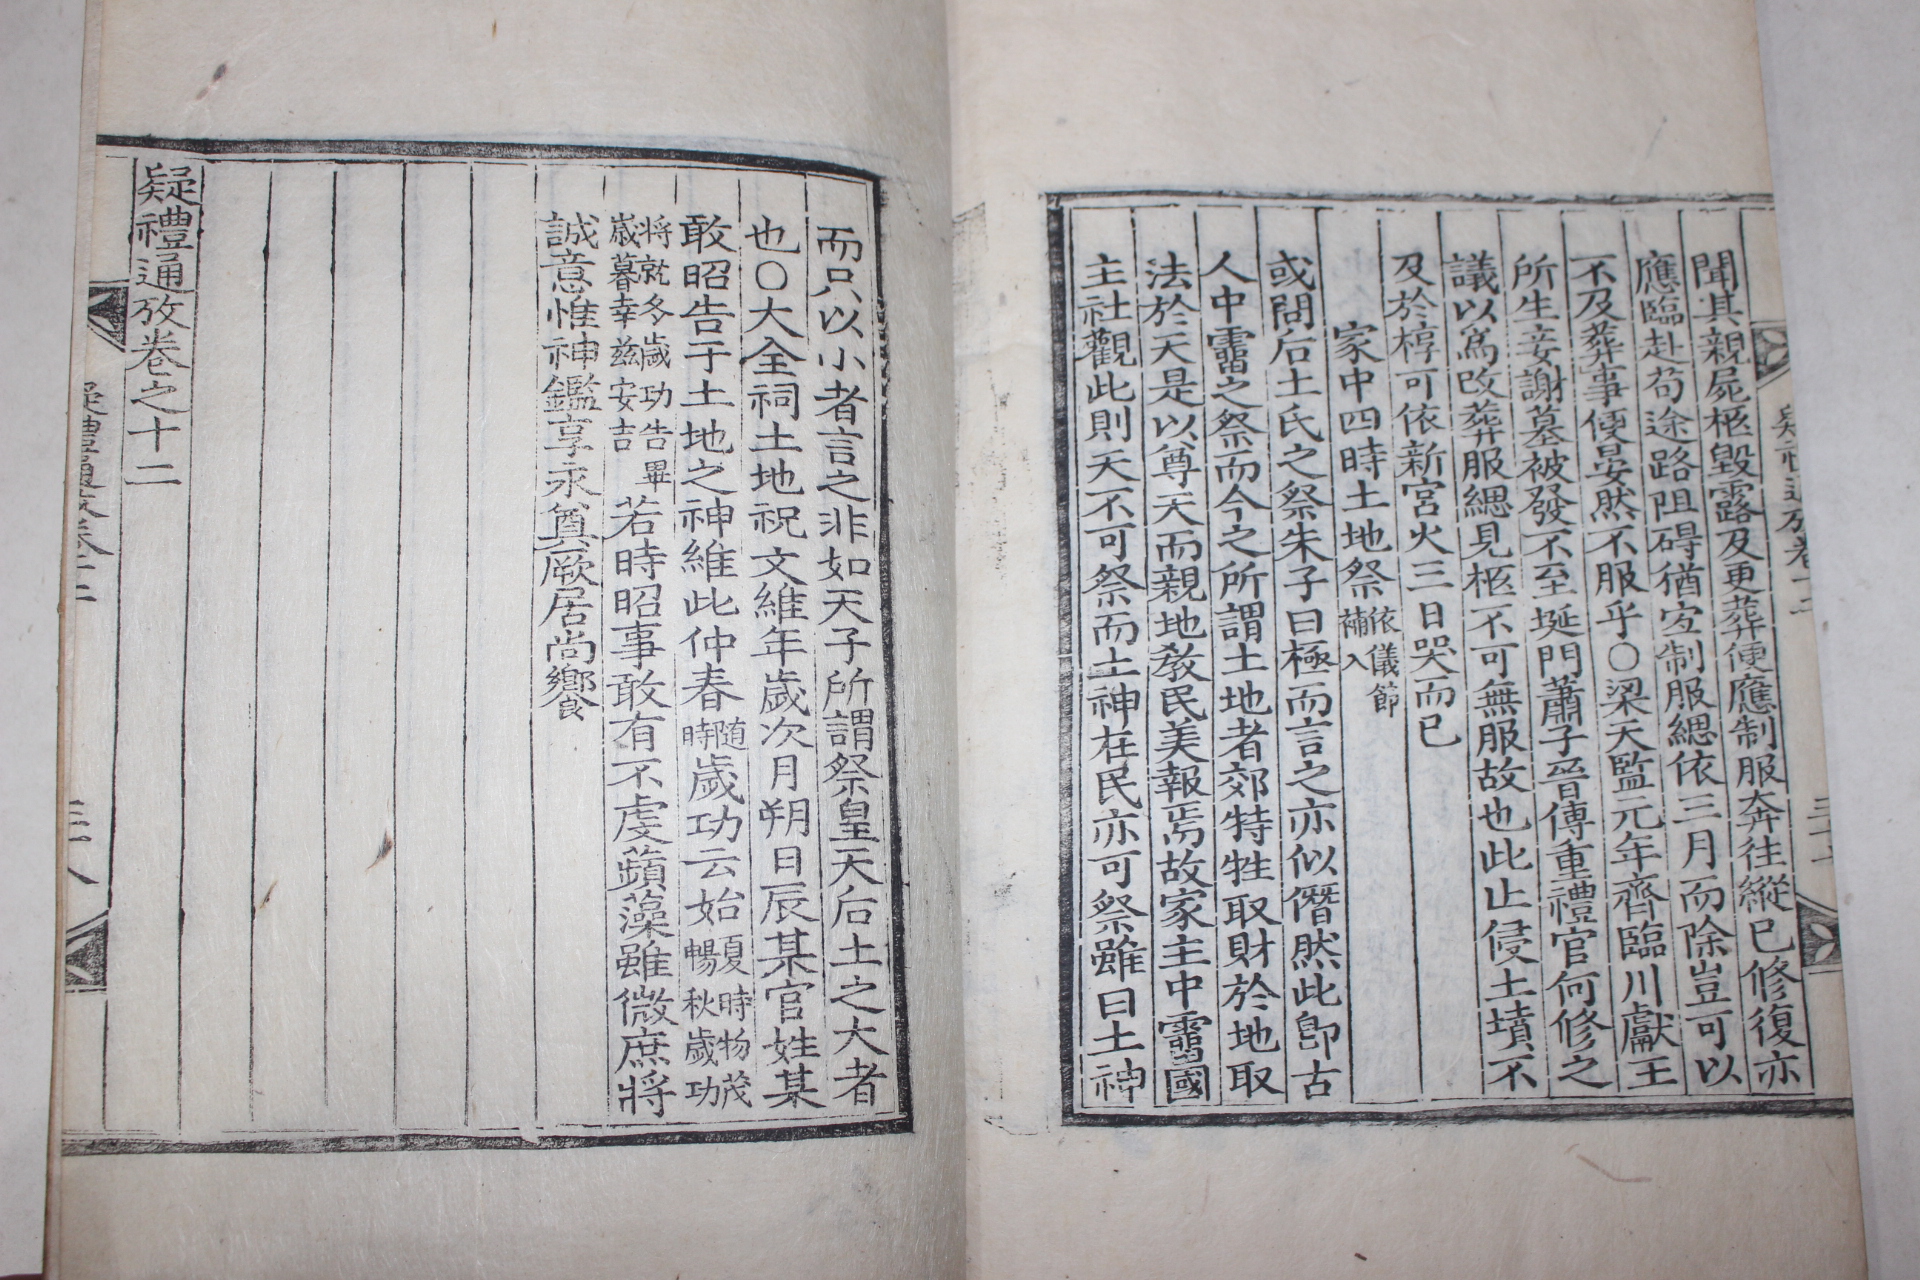 聞其親屍柩毀露及更葬便應制服奔往縱已修復亦
應臨赴苟途路阻碍猶宜制服緦依三月而除豈可以
不及葬事便晏然不服乎○梁天監元年齊臨川獻王
所生妾謝墓被發不至埏門蕭子晉傳重禮官何修之
議以爲改葬服緦見柩不可無服故也此止侵土墳不
及於椁可依新宮火三日哭而已
家中四時土地祭 依儀節補入
或問后土氏之祭朱子曰極而言之亦似僭然此卽古
人中霤之祭而今之所謂土地者郊特牲取財於地取
法於天是以尊天而親地敎民美報焉故家主中霤國
主社觀此則天不可祭而土神在民亦可祭雖曰土神
而只以小者言之非如天子所謂祭皇天后土之大者
也○大全祠土地祝文維年歲次月朔日辰某官姓某
敢昭告于土地之神維此仲春 隨時 歲功云始 夏時物茂暢秋歲功
將就冬歲功告畢歲暮幸玆安吉 若時昭事敢有不虔蘋藻雖微庶將
誠意惟神鑑享永奠厥居尙饗
疑禮通攷卷之十二
疑禮通攷卷十二
三十八